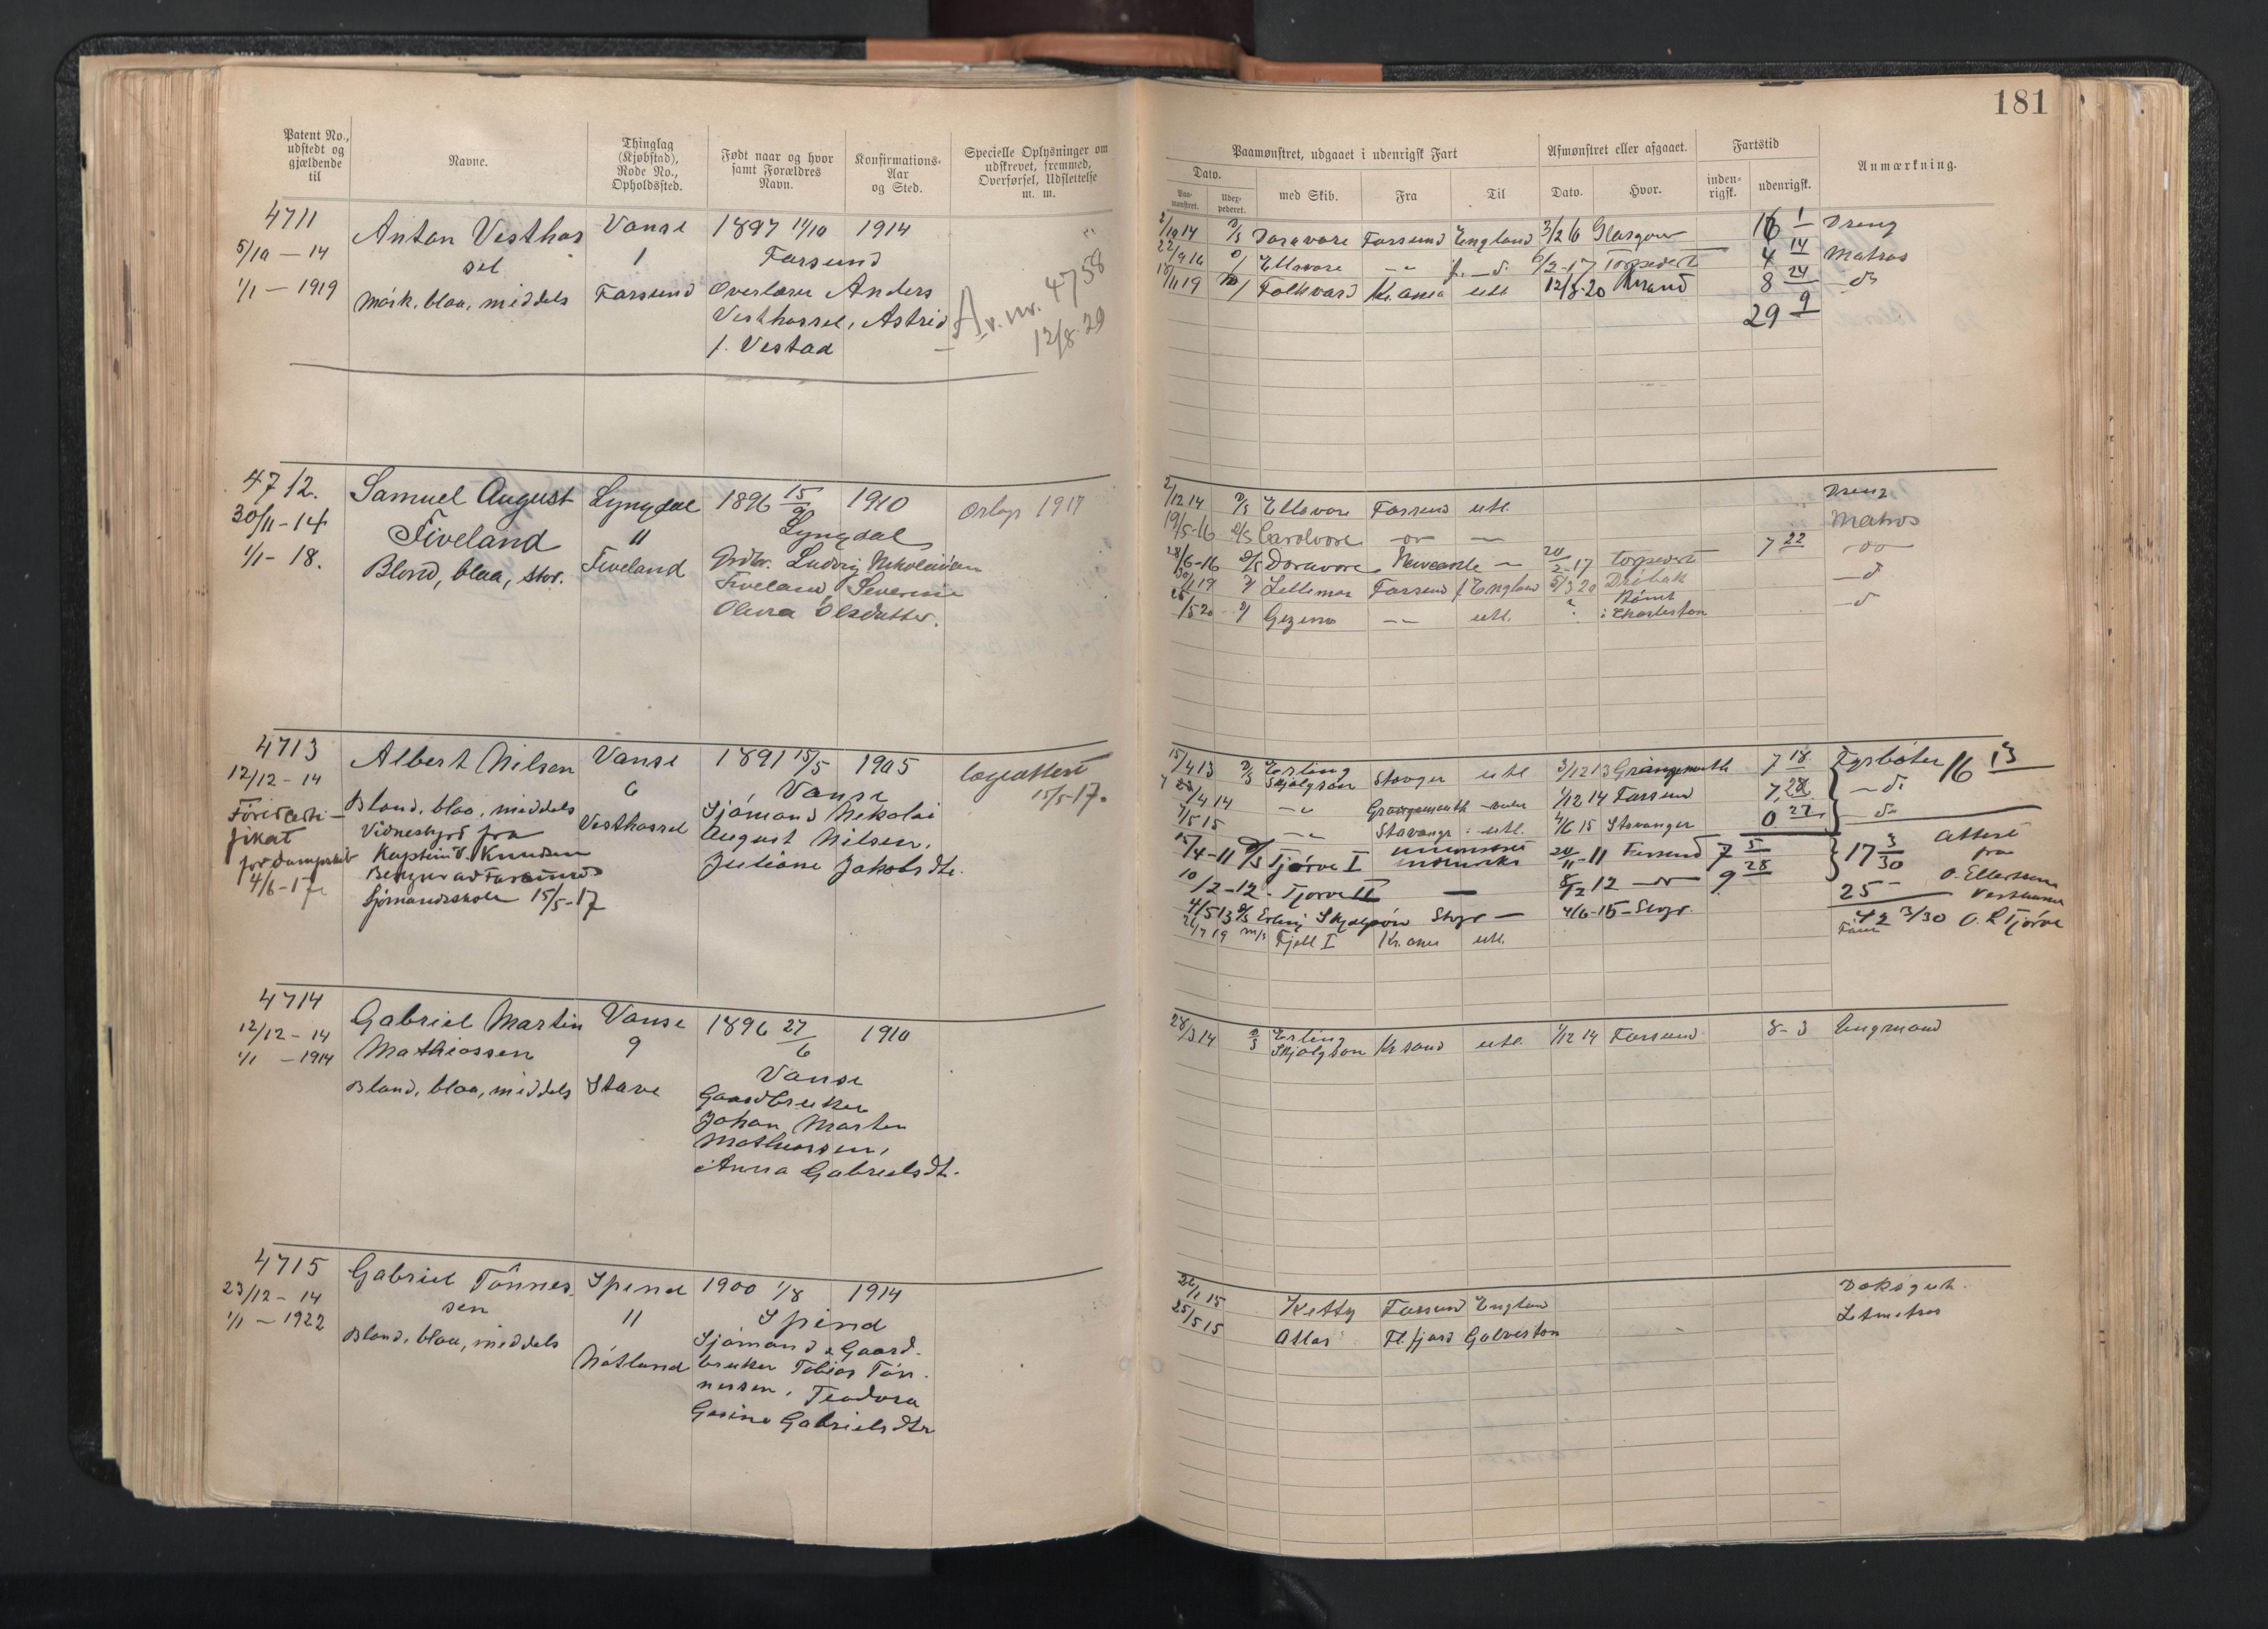 181
Patent No., udstedt og gjældende til
Navne.
Thinglag (Kjøbstad), Rode No., Opholdssted.
Født naar og hvor samt Forældres Navn.
Konfirmations- Aar og Sted.
Specielle Oplysninger om udskrevet, fremmed, Overførsel, Udslettelse m. m.
Paamønstret, udgaaet i udenrigsk Fart
Afmønstret eller afgaaet.
Fartstid
Anmærkning.
Dato.
Paa-mønstret.
med Skib.
Fra
Til
Dato.
Hvor.
inden-rigsk.
udenrigsk.
4711 Anton Vesthas Vanse 1897 11/10 1914
5/10 - 14 sel 1 Farsund
1/1 - 1919 Mörk, blaa, middels Farsund Overlærer Anders
Vesthassel, Astrid
f. Vestad
A.v. nr. 4758
12/8-29
2/10 14 D/S Doravore Farsund England 3/2 6 Glasgow 16 1 Dreng
22/9 16 Ellavore - " - 6/2-17 torpedert 4 14 Matros
18/11 19 Folkvard Kr.ania utl 12/8-20 Krsand 8 24 do
29 9
4712. Samuel August Lyngdal 1896 15/9 1910 Orlogs 1917
30/11-14 Fiveland 11 Lyngdal
1/1-18. Blond, blaa, stor. Fiveland Grdbr. Ludvig Nikolaisen
Fiveland, Severine
Olava Olsdatter.
2/12 14 D/S Ellavore Farsund utl. Dreng
19/5-16 D/S Carolvore Matros
28/6-16 D/S Doravore Newcastle 20/2-17 torpedert 7 22
19 Lillemor Farsund England 5/3 20 Dröbak
26/5 20 Gezina utl. ? Römt i Charleston
4713 Albert Nilsen Vanse 1891 15/5 1905 lægeattest
12/12-14 6 Vanse 15/5-17.
Blond, blaa, middels Vesthassel Sjömand Nikolai
Vidnesbyrd fra August Nilsen,
Kaptein V. Knudsen Juliane Jakobsdtr.
fikat
for dampskib
4/6-17
Sjömandsskole 15/5-17
15/4 13 D/S Erling Skjalgson Stavger utl 3/12 13 Grangemouth 7 18 Fyrböter 16 13
4 14 Grangemouth 1/12 14 Farsund 7,28
7/5 15 Stavanger utl. 4/6 15 Stavanger 0 27
15/4-11 D/S Tjörve I 20/11-11 Farsund 7 5 17 3/30 Attest fra
10/2-12 - Tjörve II 8/12 12 9 28 25 O. Ellertsen
4/5 13 D/S Erling Skjalgsön Stvgr 4/6-15 - Stvgr. 42 3/30 O. R Tjörve
21/7 19 m/s Fjell I Kr.ania utl.
4714 Gabriel Martin Vanse 1896 27/6 1910
12/12-14 Mathiassen 9 Vanse
1/1 - 1914 Blond, blaa, middels Stave Gaardbruker
Johan Martin
Mathiassen,
Anna Gabrielsdt.
28/3 14 D/S Erling Skjalgson Krsand utl. 1/12 14 Farsund 8-3 Lugmand
4715 Gabriel Tönnes Spind 1900 1/8 1914
23/12-14 sen 11 Spind
1/1 - 1922 Blond, blaa, middels Nötland Sjömand & Gaard-
bruker Tobias Tön-
nessen, Teodora
Gesine Gabrielsdtr
26/1 15 Ketty Farsund England Doksgut.
25/5 15 Atlas Fl.fjord Galveston Letmatros